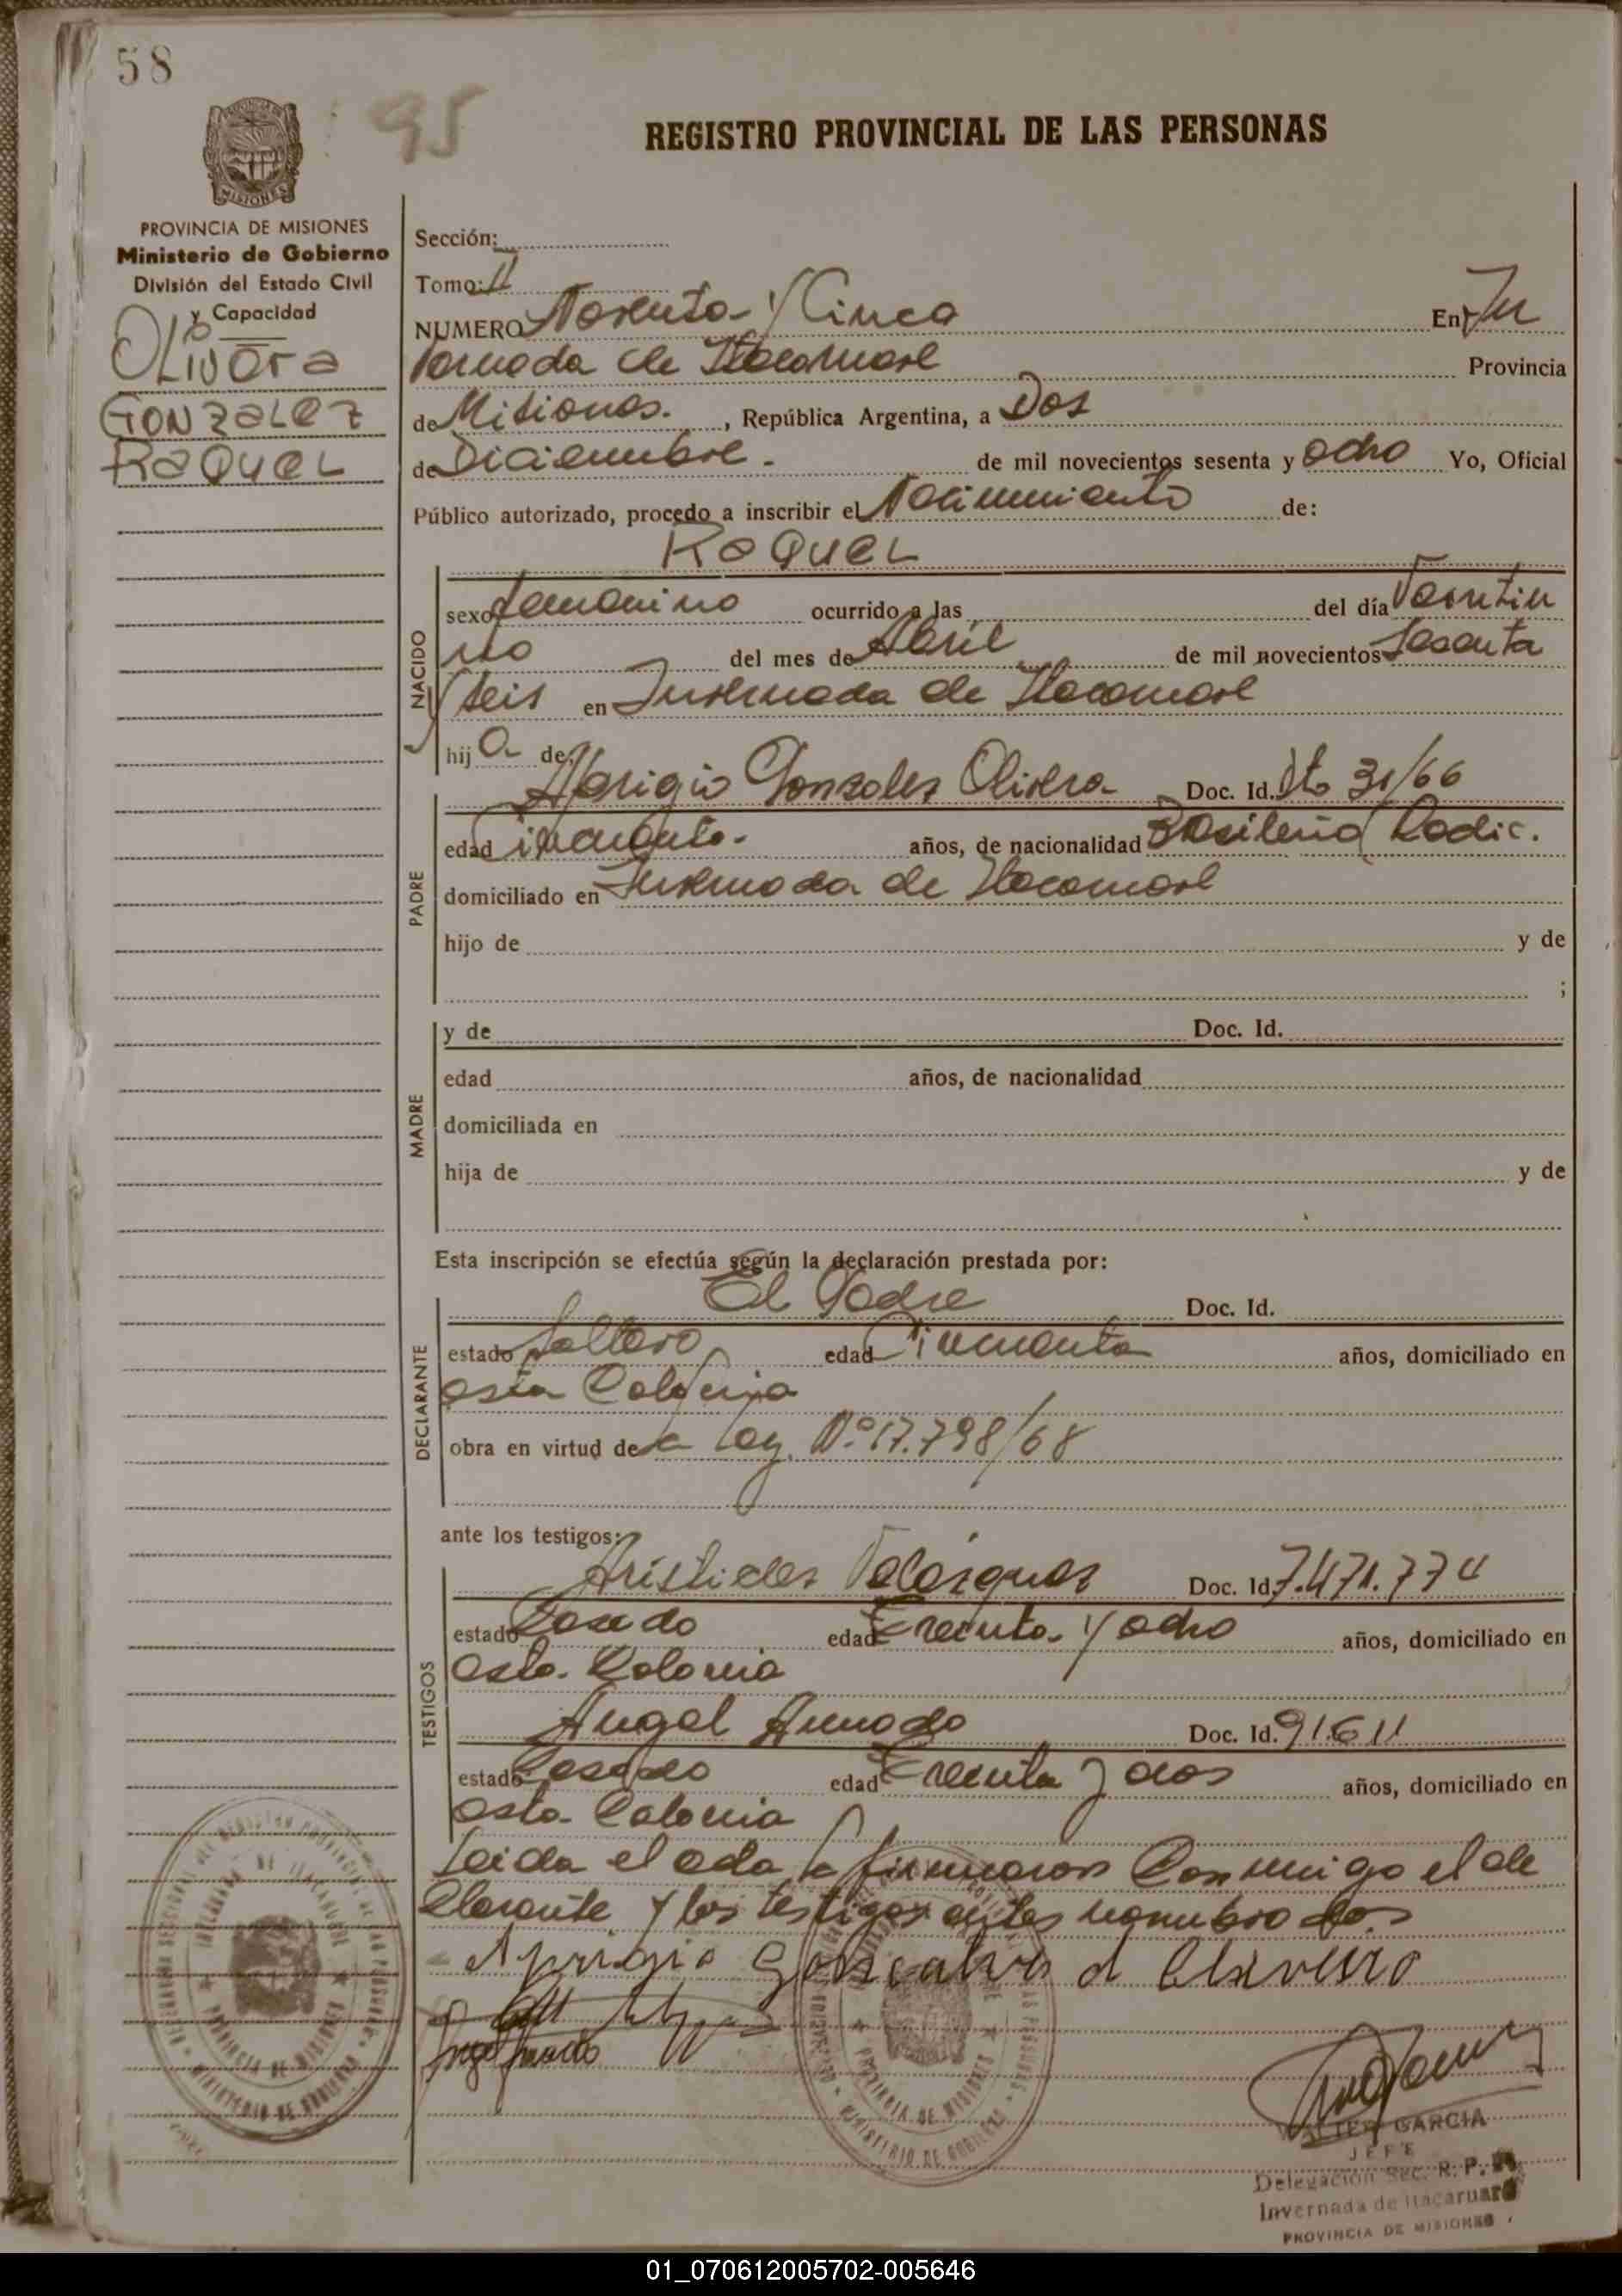 58
95
REGISTRO PROVINCIAL DE LAS PERSONAS
MISIONES
PROVINCIA DE MISIONES
Ministerio de Gobierno
División del Estado Civil
y Capacidad
OLIVERA
GONZALEZ
RAQUEL
Sección:
Tomo: II
NUMERO Noventa y Cinco En In
vernada de Itacaruaré Provincia
de Misiones. , República Argentina, a Dos
de Diciembre. de mil novecientos sesenta y ocho Yo, Oficial
Público autorizado, procedo a inscribir el Nacimiento de:
RAQUEL
NACIDO
sexo femenino ocurrido a las del día Veintiu
no del mes de Abril de mil novecientos sesenta
y seis en Invernada de Itacaruaré
hij a de:
PADRE
Aprigio Gonzales Olivera Doc. Id. 31/66
edad Cincuenta años, de nacionalidad Brasileña Radic.
domiciliado en Invernada de Itacaruaré
hijo de y de
;
MADRE
y de Doc. Id.
edad años, de nacionalidad
domiciliada en
hija de y de
Esta inscripción se efectúa según la declaración prestada por:
DECLARANTE
El Padre Doc. Id.
estado Soltero edad Cincuenta años, domiciliado en
esta Colonia
obra en virtud de la Ley. Nº 17.798/68
ante los testigos:
TESTIGOS
Aristides Velasquez Doc. Id. 7.471.774
estado Casado edad Treinta y ocho años, domiciliado en
esta Colonia
Angel Doc. Id. 91.611
estado Casado edad Treinta y dos años, domiciliado en
esta Colonia
Leida el acta la firmaron Conmigo el de
clarante y los testigos antes nombrados
Aprigio Gonçalves d Oliveira
WALTER GARCIA
JEFE
Delegación Sec. R. P. P.
Invernada de Itacaruaré
PROVINCIA DE MISIONES
01_070612005702-005646